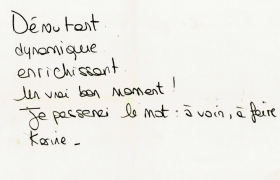 Déroutant
dynamique
enrichissant
Un vrai bon moment !
Je passerai le mot : à voir, à faire
Karine -